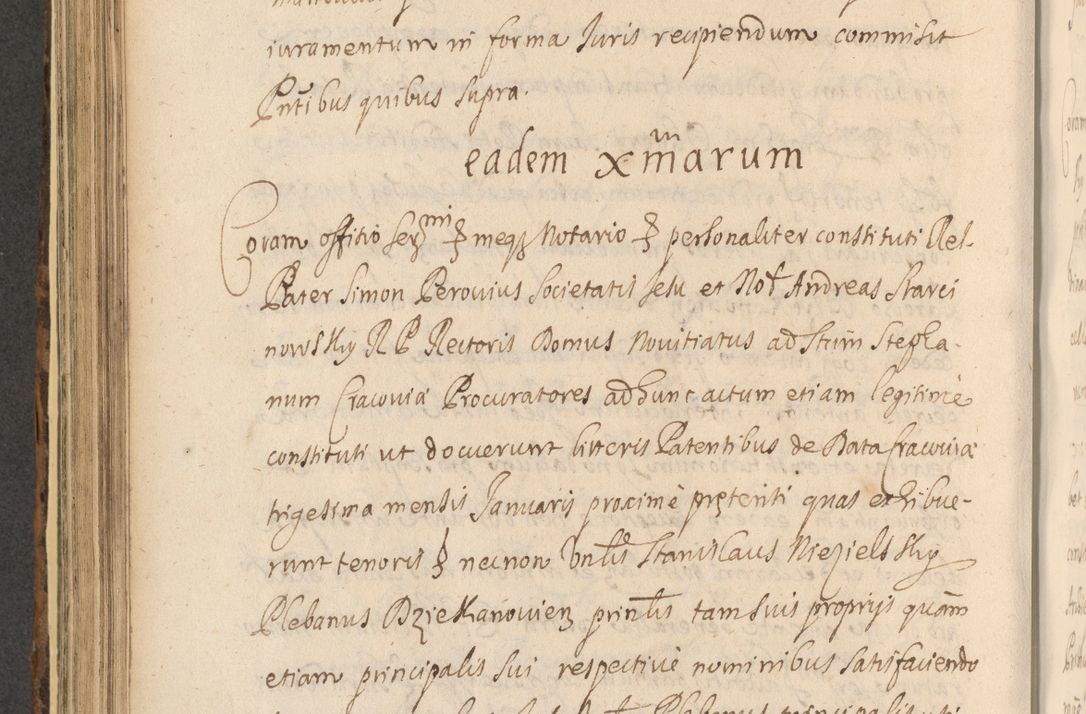 iuramentum in forma Iuris recipiendum commisit
Pntibus quibus supra.
eadem Xmarum
Coram offitio Sermi & meqz Notario & personaliter constituti Rel.
Pater Simon Perovius Societatis Iesu et Nob Andreas Starci
nowsky R P Rectoris Domus Novitiatus ad Stum Stepha-
num Cracoviæ Procuratores ad hunc actum etiam legitimè
constituti ut docuerunt litteris Patentibus de Data Cracoviæ
trigesima mensis Ianuarij proximè prętenti quas exhibue-
runt tenoris & necnon Vnblis Stanislaus Niezielsky
Plebanus Dziekanovien prinlis tam suis proprijs quàm
etiam principalis sui respectivè nominibus satisfaciendo